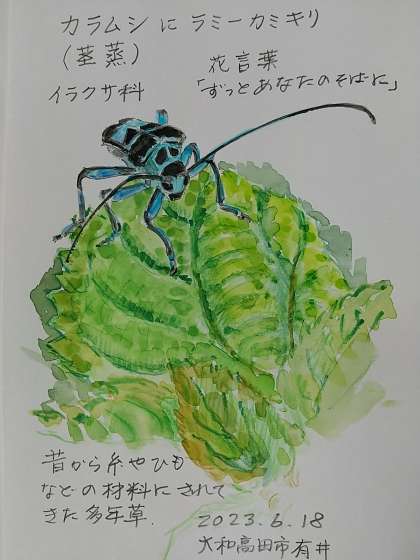 カラムシに ラミーカミキリ
(茎蒸)
イラクサ科
花言葉
「ずっとあなたのそばに」
昔から糸やひも
などの材料にされて
きた多年草.
2023.6.18
大和高田市有井